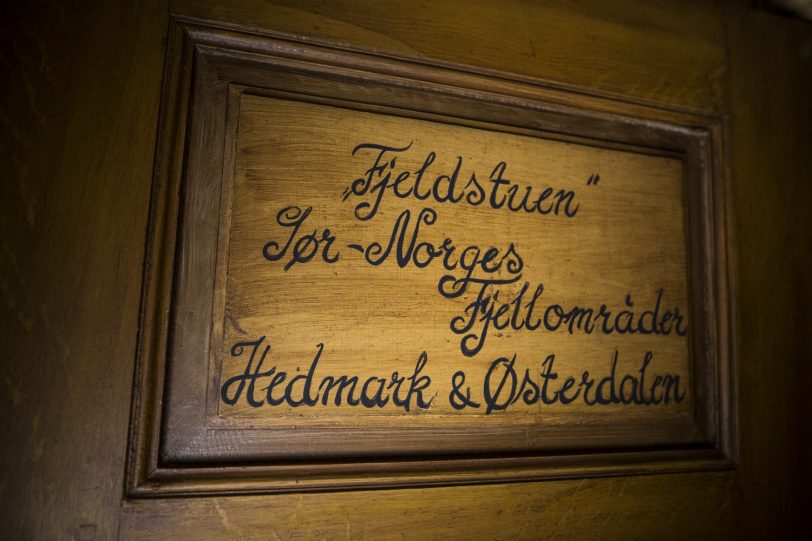 „Fjeldstuen“
Sør-Norges
Fjellområder
Hedmark & Østerdalen